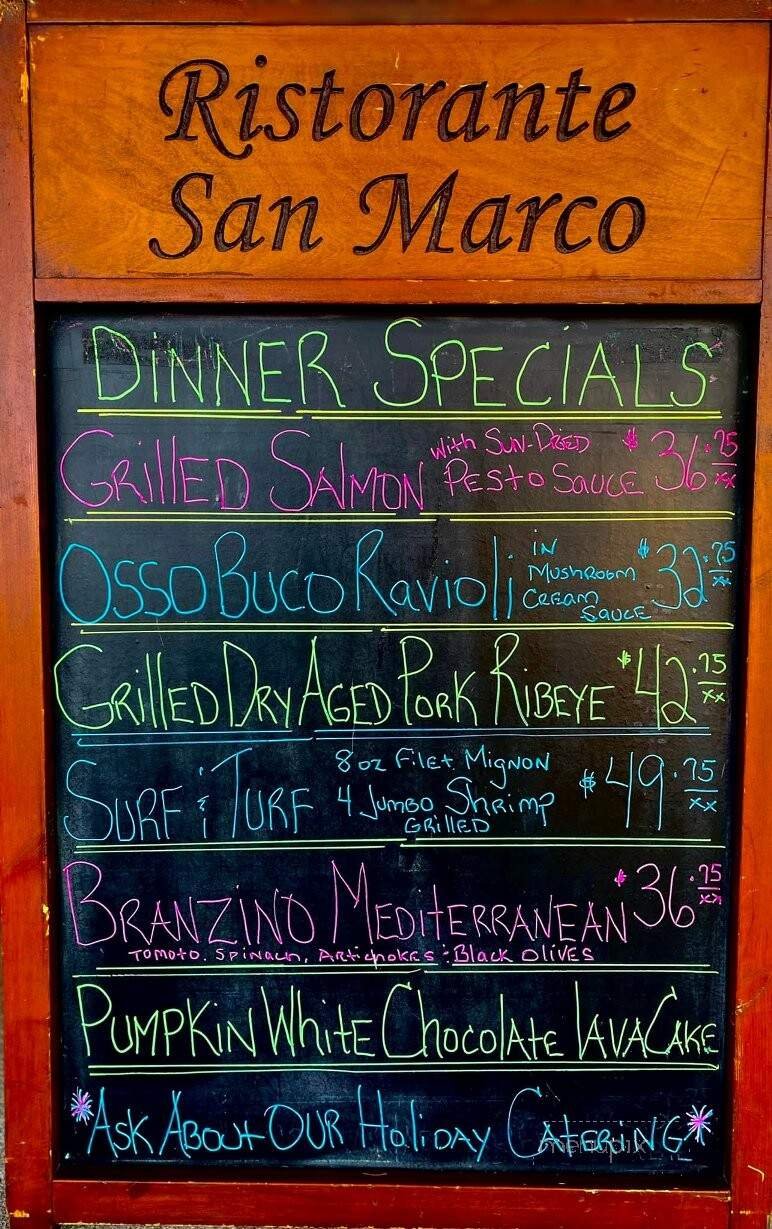 Ristorante
San Marco
DINNER SPECIALS
GRILLED SALMON with SUN-DRIED PESTO SAUCE $36.75/xx
OSSO BUCO Ravioli IN MUSHROOM CREAM SAUCE $32.75/xx
GRILLED DRY AGED PORK RIBEYE $42.75/xx
SURF & TURF 8 oz Filet MIGNON $49.75/xx
4 JUMBO SHRIMP
GRILLED
BRANZINO MEDITERRANEAN $36.75/xx
TOMATO. SPINACH, ARTICHOKES & BLACK OLIVES
PUMPKIN WHITE CHOCOLATE LAVA CAKE
*ASK ABOUT OUR HOLIDAY CATERING*
menupix